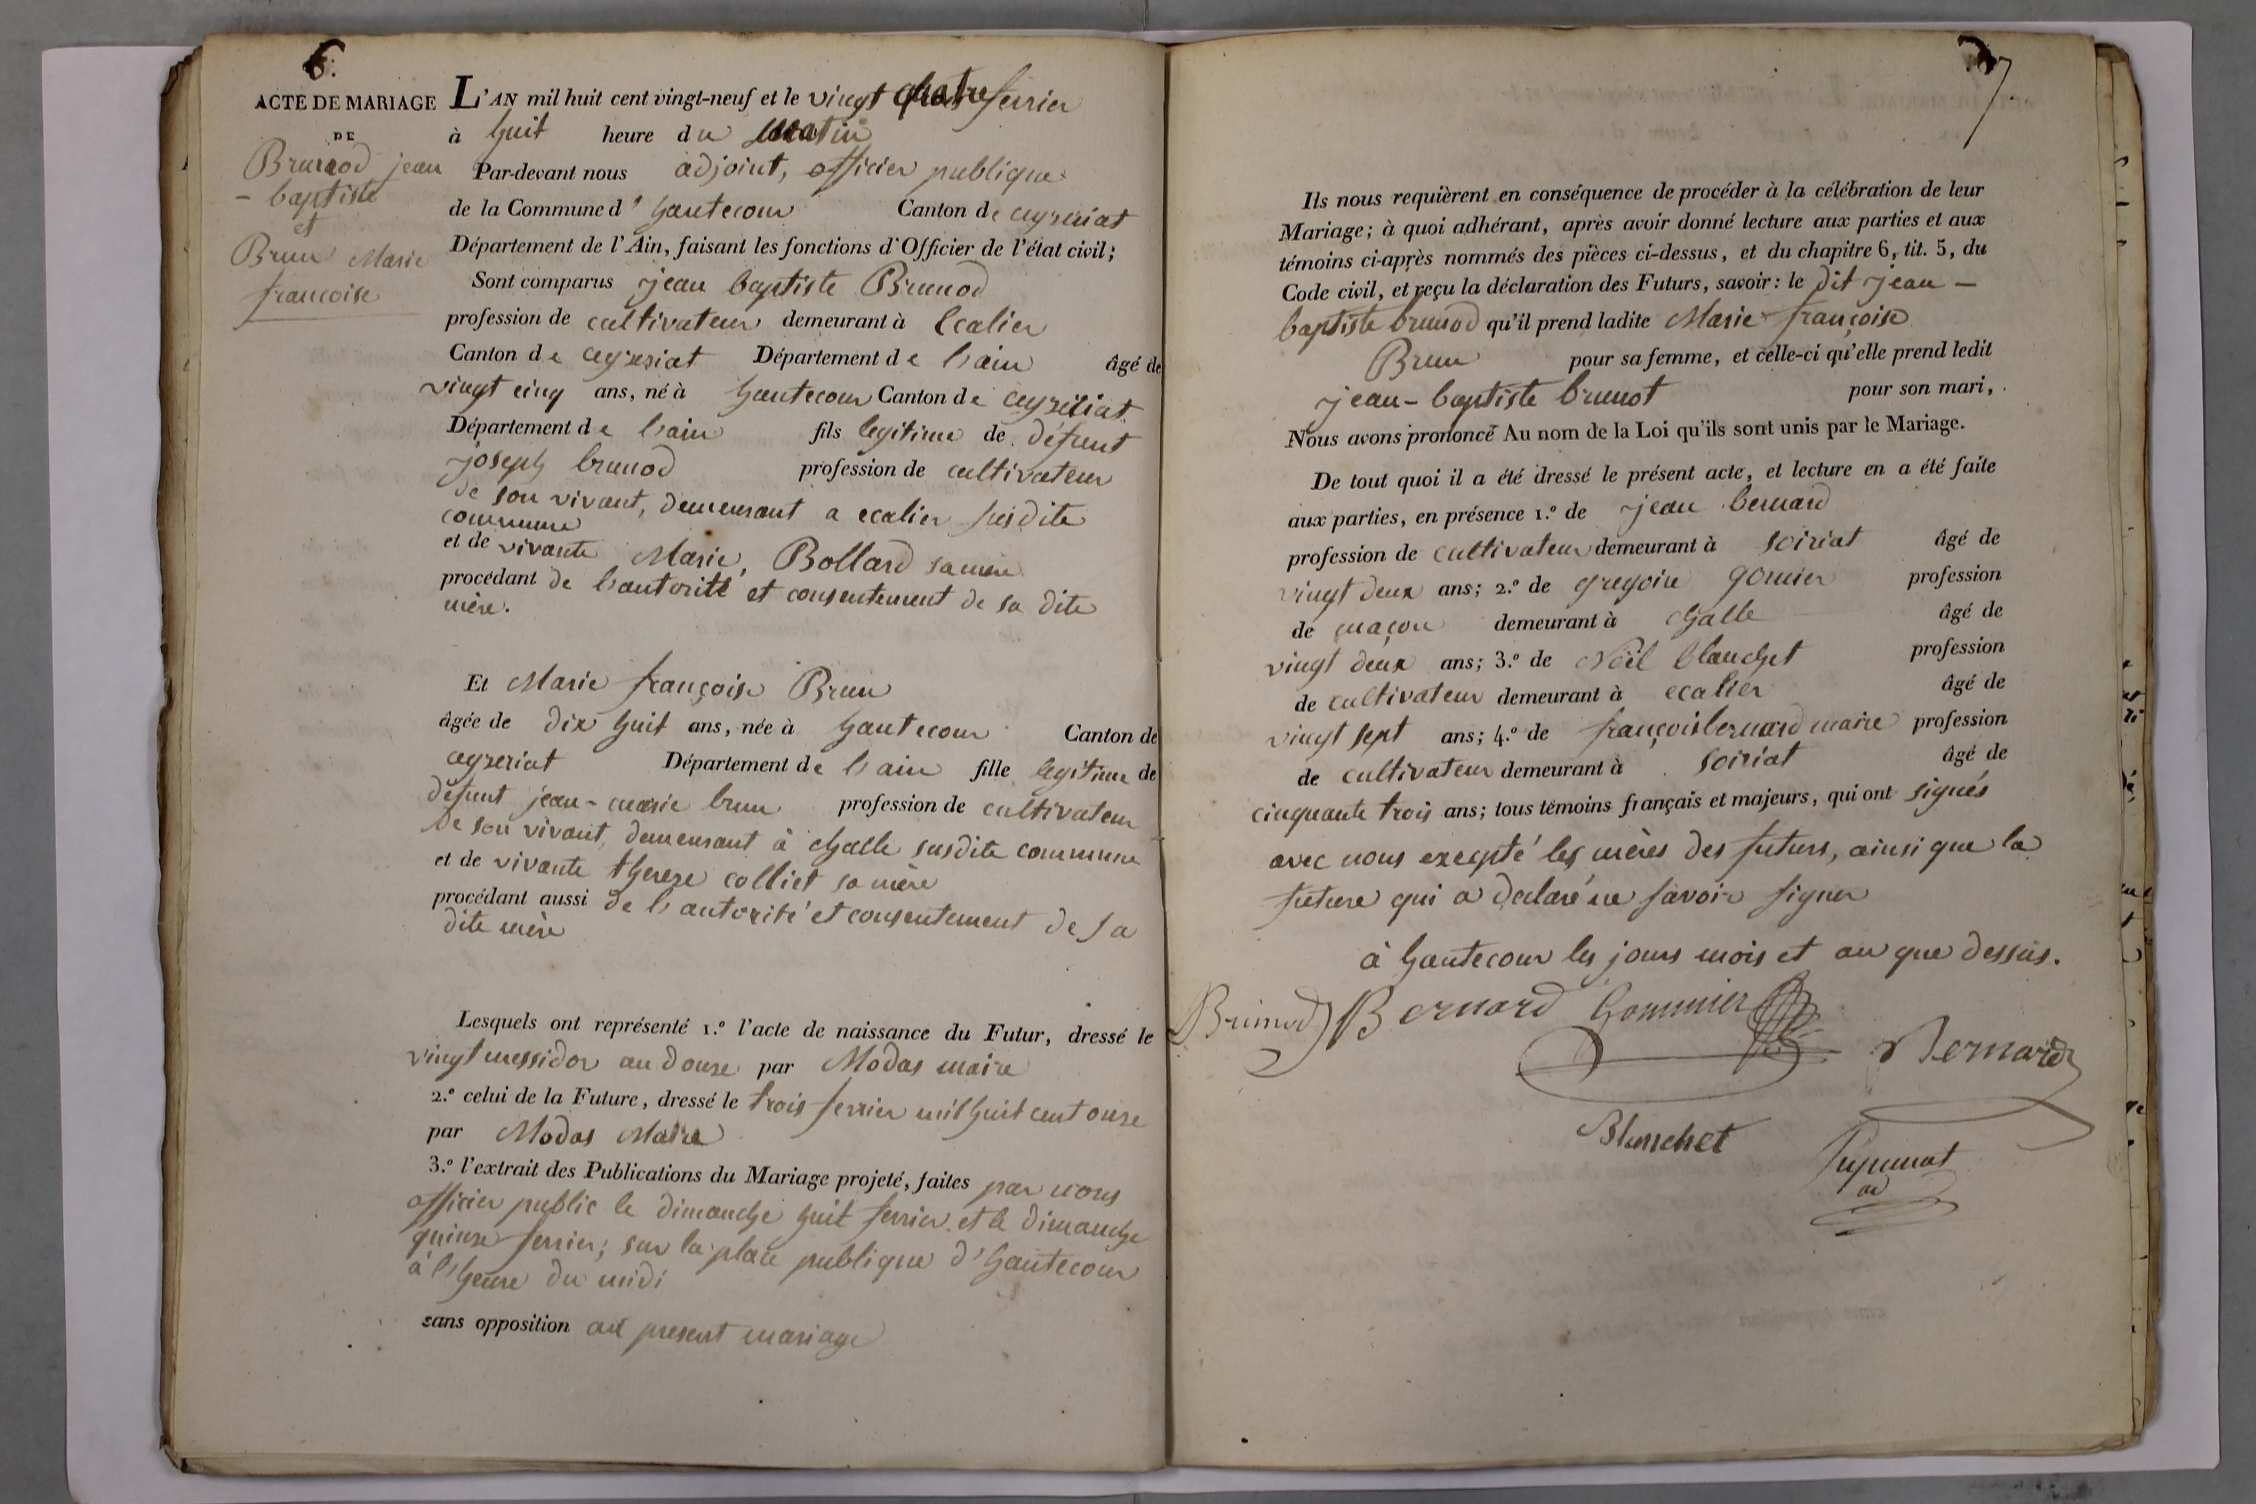 6.
ACTE DE MARIAGE
DE
Brunod jean
- baptiste
et
Brun Marie
francoise
L'AN mil huit cent vingt-neuf et le vingt quatre fevrier
à huit heure du matin
Par-devant nous adjoint, officier publique
de la Commune d' hautecour Canton de ceyzeriat
Département de l'Ain, faisant les fonctions d'Officier de l'état civil;
Sont comparus jean baptiste Brunod
profession de cultivateur demeurant à Ecalier
Canton de ceyzeriat Département de l'ain âgé de
vingt cinq ans, né à hautecour Canton de ceyzeriat
Département de l'ain fils legitime de défunt
joseph brunod profession de cultivateur
de son vivant, demeurant a ecalier susdite
commune
et de vivante Marie, Bollard sa mère
procédant de l'autorité et consentement de sa dite
mère.
Et Marie françoise Brun
âgée de dix huit ans, née à hautecour Canton de
ceyzeriat Département de l'ain fille legitime de
défunt jean-marie brun profession de cultivateur
de son vivant, demeurant à challe susdite commune
et de vivante therese colliet sa mère
procédant aussi de l'autorité et consentement de sa
dite mère
Lesquels ont représenté 1.º l'acte de naissance du Futur, dressé le
vingt messidor an douze par Modas maire
2.º celui de la Future, dressé le trois fevrier mil huit cent onze
par Modas Maire
3.º l'extrait des Publications du Mariage projeté, faites par nous
officier public le dimanche huit fevrier et le dimanche
quinze fevrier; sur la place publique d'hautecour
à l'heure du midi
sans opposition au present mariage
7
Ils nous requièrent en conséquence de procéder à la célébration de leur
Mariage; à quoi adhérant, après avoir donné lecture aux parties et aux
témoins ci-après nommés des pièces ci-dessus, et du chapitre 6, tit. 5, du
Code civil, et reçu la déclaration des Futurs, savoir: le dit jean -
baptiste brunod qu'il prend ladite Marie françoise
Brun pour sa femme, et celle-ci qu'elle prend ledit
jean-baptiste brunot pour son mari,
Nous avons prononcé Au nom de la Loi qu'ils sont unis par le Mariage.
De tout quoi il a été dressé le présent acte, et lecture en a été faite
aux parties, en présence 1.º de jean bernard
profession de cultivateur demeurant à soiriat âgé de
vingt deux ans; 2.º de gregoire gomier profession
de maçon demeurant à challe âgé de
vingt deux ans; 3.º de Noël blanchet profession
de cultivateur demeurant à ecalier âgé de
vingt sept ans; 4.º de françois bernard maire profession
de cultivateur demeurant à soiriat âgé de
cinquante trois ans; tous témoins français et majeurs, qui ont signés
avec nous excepté les mères des futurs, ainsi que la
future qui a declaré ne savoir signer
à hautecour les jours mois et an que dessus.
Brunod Bernard Gommier
Bernard
Blanchet